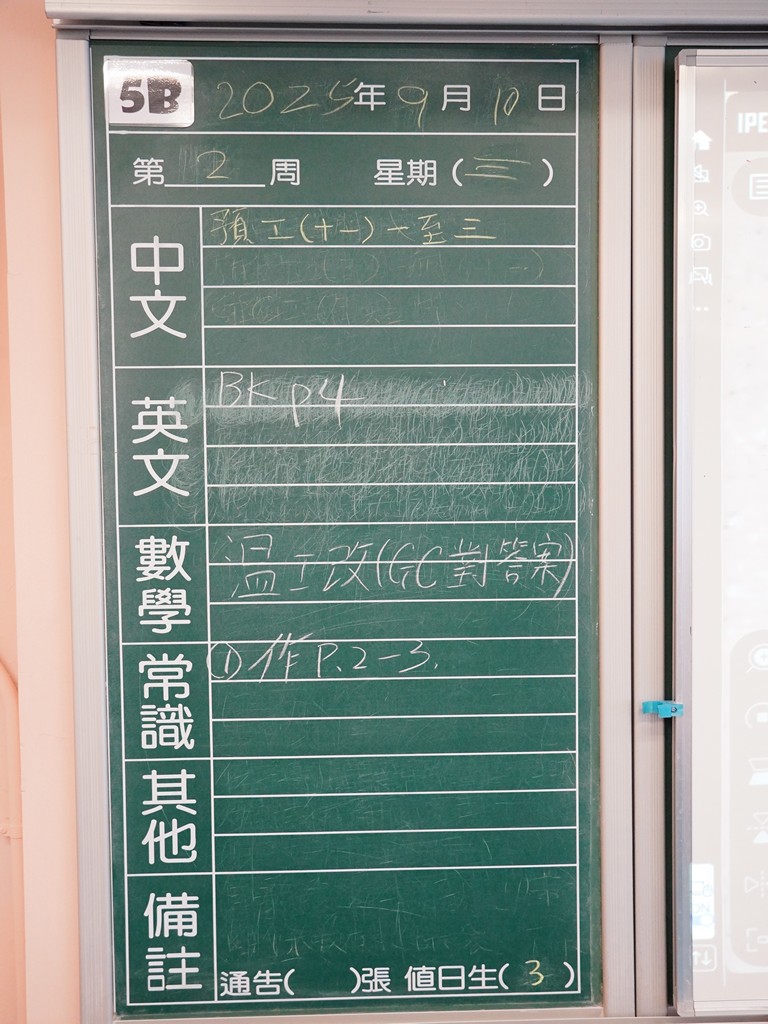 5B 2025年9月10日
第2周 星期(三)
中文 預工(十一)一至三
英文 BK p4
數學 温工改(GC對答案)
常識 ①作P.2-3.
其他
備註
通告( )張 值日生(3)
IPE